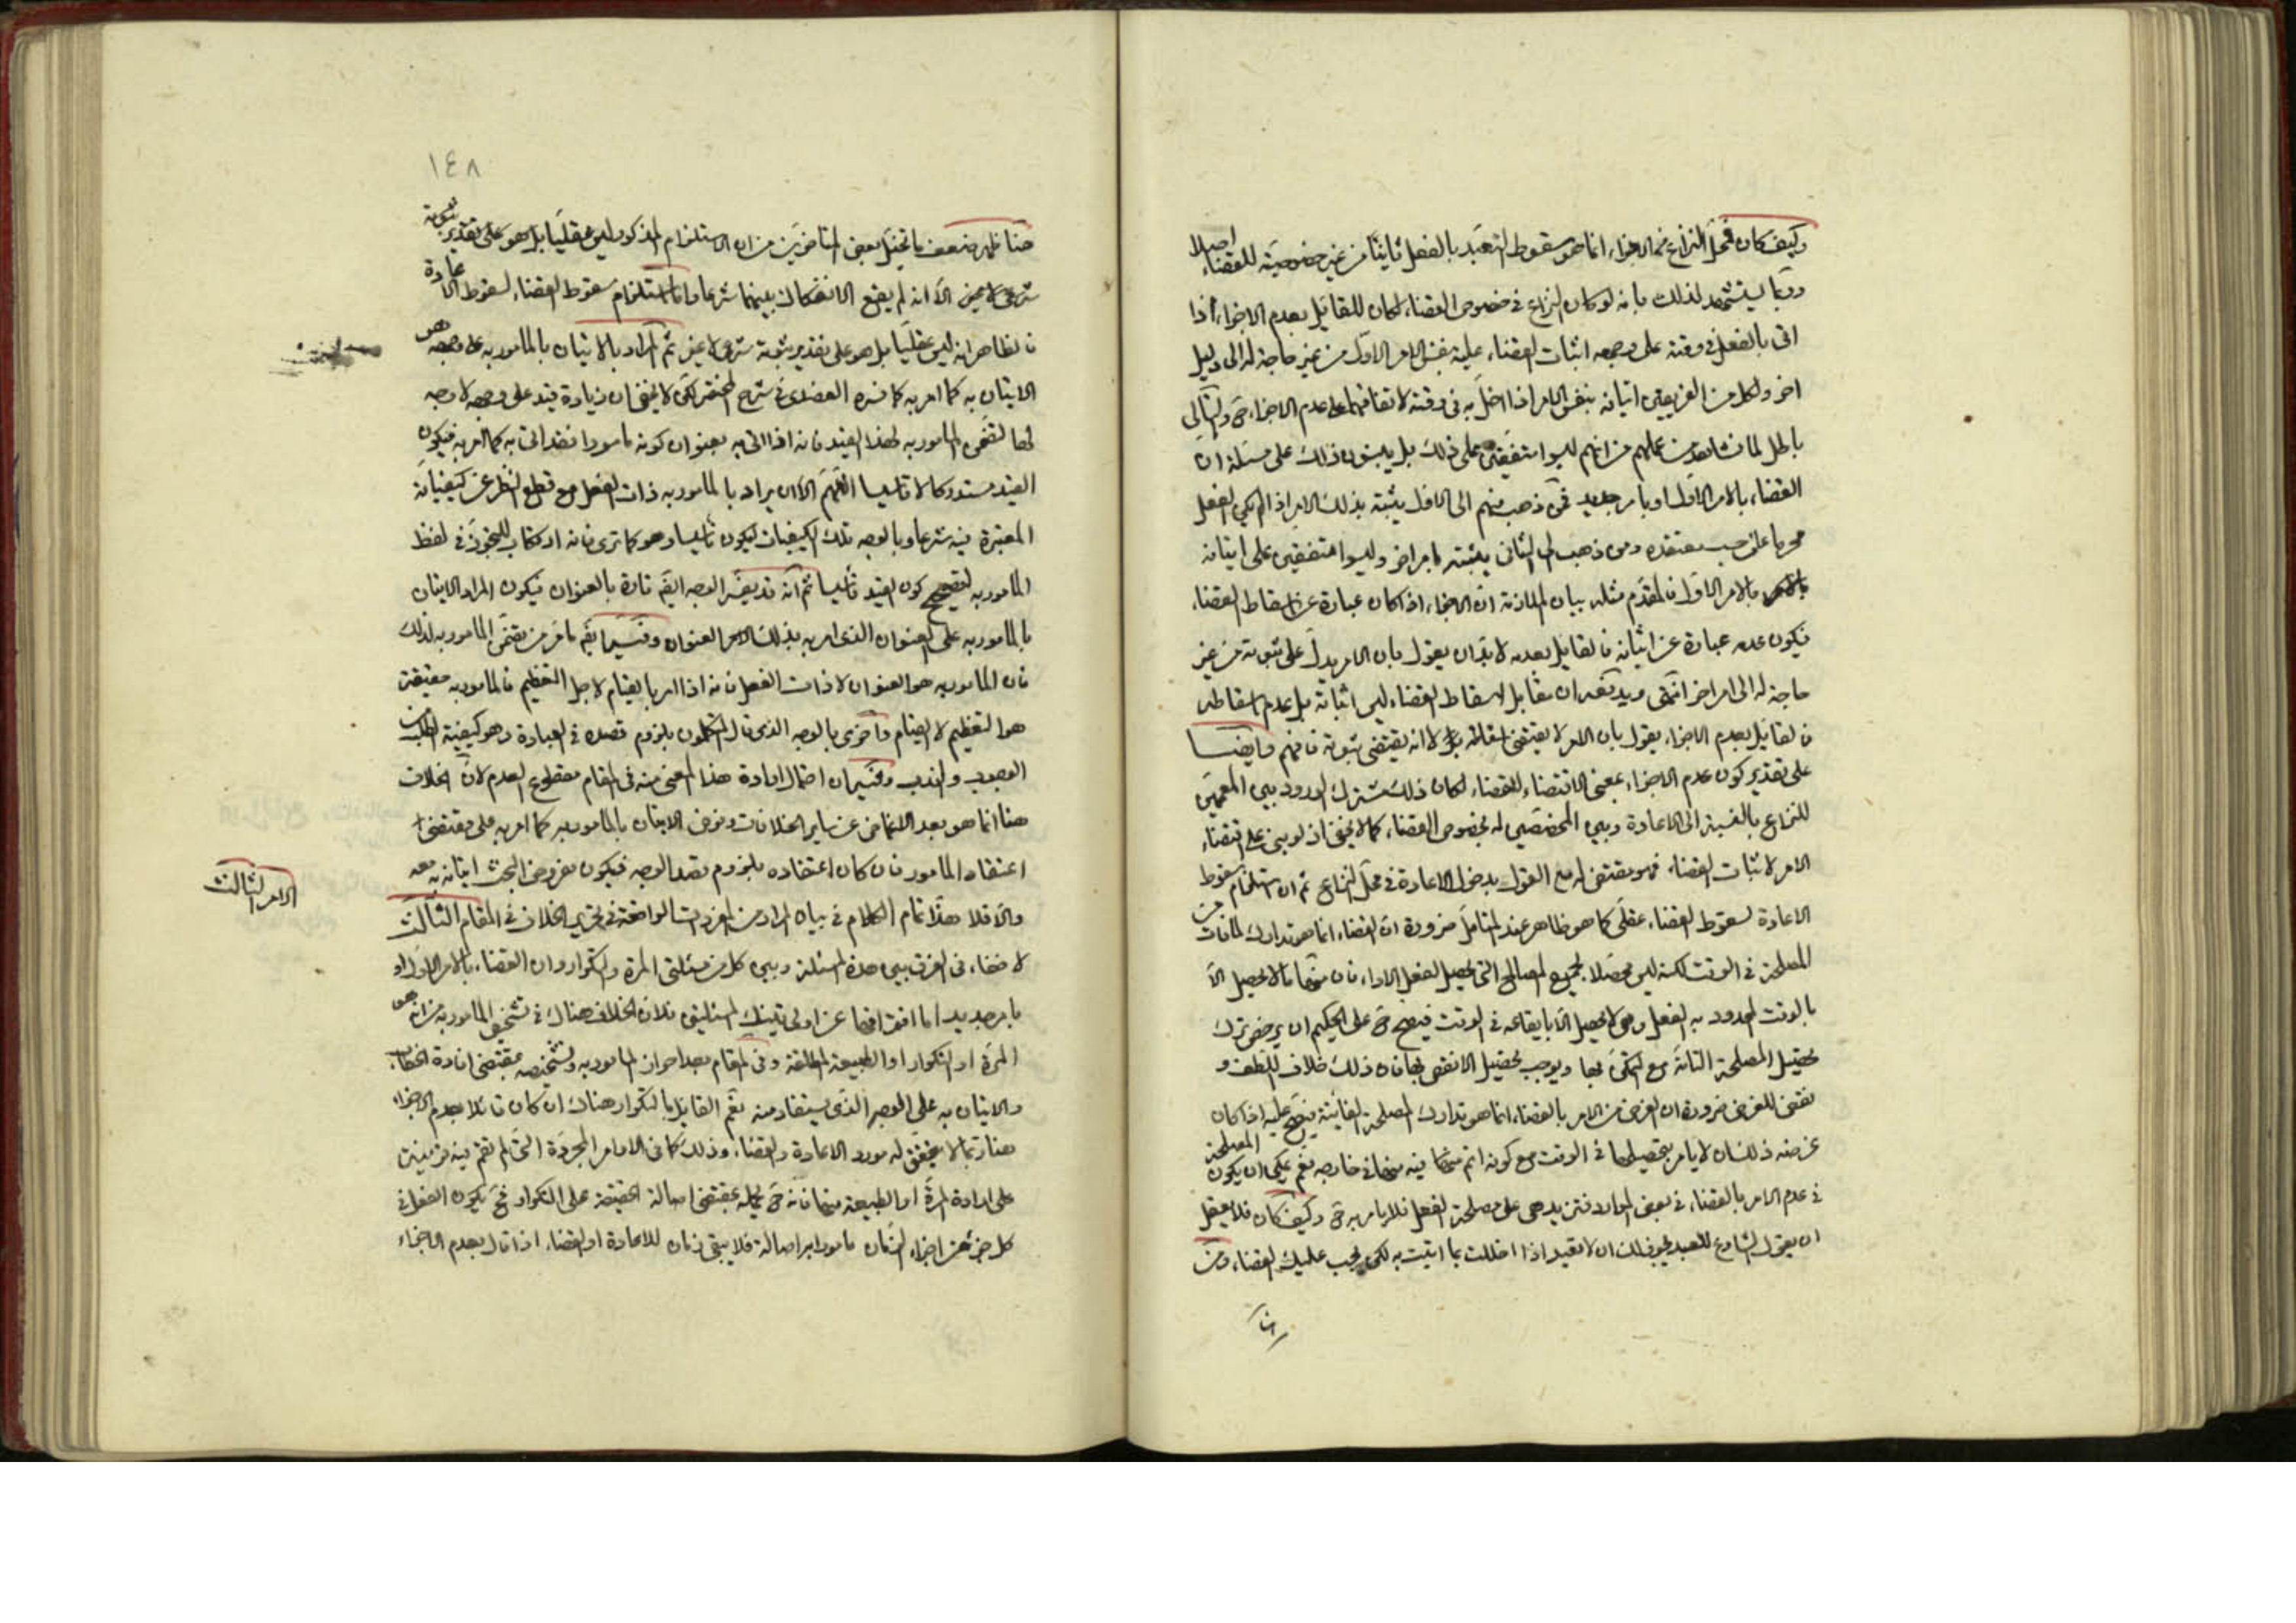 وكيف كان فمحل النزاع في الاجزاء انما هو سقوط التعبد بالفعل ثانيا من غير خصوصية للقضاء اصلا
وربما يستشهد لذلك بانه لو كان النزاع في خصوص القضاء لكان للقائل بعدم الاجزاء اذا
اتى بالفعل في وقته على وجهه اثبات القضاء عليه بنفس الامر الاول من غير حاجة له الى دليل
اخر ولكل من الفريقين اتيانه بنفس الامر اذا اخل به في وقته لاتفاقهما على عدم الاجزاء ح والتالي
باطل لما نشاهد من عملهم من انهم ليسوا متفقين على ذلك بل يبنون ذلك على مسئلة ان
القضاء بالامر الاول او بامر جديد فمن ذهب منهم الى الاول يثبته بذلك الامر اذا لم يكن الفعل
مجزيا على حسب معتقده ومن ذهب الى الثاني يثبته بامر اخر وليسوا متفقين على اثباته
بالامر الاول فالمقدم مثله بيان الملازمة ان الاجزاء اذا كان عبارة عن اسقاط القضاء
فيكون عدمه عبارة عن اثباته فالقائل بعدمه لا بد ان يقول بان الامر يدل على ثبوته من غير
حاجة له الى امر اخر انتهى ان مقابل اسقاط القضاء ليس اثباته بل عدم اسقاطه
فالقائل بعدم الاجزاء يقول بان الامر لا يقتضي اسقاطه لا انه يقتضي ثبوته فافهم وايضا
على تقدير كون عدم الاجزاء بمعنى الاقتضاء للقضاء لكان ذلك مشترك الورود بين المعممين
للنزاع بالنسبة الى الاعادة وبين المخصصين له بخصوص القضاء كما لا يخفى اذ لو بنى على اقتضاء
الامر لاثبات القضاء فهو مقتضى له مع القول بدخول الاعادة في محل النزاع ثم ان استلزام سقوط
الاعادة لسقوط القضاء عقلي كما هو ظاهر عند المتأمل ضرورة ان القضاء انما هو تدارك لما فات من
المصلحة في الوقت لكنه ليس محصلا لجميع المصالح التي تحصيل الفعل الاداء فان منها ما لا يحصل الا
بالوقت المحدود به الفعل وهي لا تحصل الا بايقاعه في الوقت فيقبح ح على الحكيم ان يرخص ترك
تحصيل المصلحة التامة مع التمكن بها ويوجب تحصيل الانقص بها فان ذلك خلاف اللطف و
نقض للغرض ضرورة ان الغرض من الامر بالقضاء انما هو تدارك المصلحة الفائتة فيقبح عليه اذا كان
غرضه ذلك ان لا يأمر بتحصيلها في الوقت مع كونه اتم منها فيه منها في خارجه نعم يمكن ان يكون المصلحة
في عدم الامر بالقضاء في بعض الموارد فتزيد هي على مصلحة الفعل فلا يأمر به ح وكيف كان فلا يعقل
ان يقول الشارع للعبد يجوز لك ان لا تعيد اذا اخللت بما اتيت به لكن يجب عليك القضاء ومن
هنا
١٤٨
هنا ظهر ضعف ما تخيل بعض المتاخرين من ان الاستلزام المذكور ليس عقليا بل هو على تقدير ثبوته
شرعي لا غير الا انه لم يقع الانفكاك بينهما شرعا واما استلزام سقوط القضاء لسقوط الاعادة
فالظاهر انه ليس عقليا بل هو على تقدير ثبوته شرعي لا غير ثم المراد بالاتيان بالمامور به على وجهه هو
الاتيان به كما امر به كما فسره العضدي في شرح المختصر لكن لا يخفى ان زيادة قيد على وجهه لا وجه
لها لتضمن المامور به لهذا القيد فانه اذا اتى به بعنوان كونه مامورا فقد اتى به كما امر به فيكون
القيد مستدركا لا تاسيسا اللهم الا ان يراد بالمامور به ذات الفعل مع قطع النظر عن كيفياته
المعتبرة فيه شرعا وبالوجه تلك الكيفيات ليكون تاسيسا وهو كما ترى فانه ارتكاب للتجوز في لفظ
المامور به لتصحيح كون القيد تاسيسا ثم انه قد يفسر الوجه ايضا تارة بالعنوان فيكون المراد الاتيان
بالمامور به على العنوان الذي امر به بذلك العنوان وفيه ايضا ما مر من تضمن المامور به لذلك
فان المامور به هو العنوان لا ذات الفعل فانه اذا امر بالقيام لاجل التعظيم فالمامور به حقيقة
هو التعظيم لا القيام واخرى بالوجه الذي قال المتكلمون بلزوم قصده في العبادة وهو كيفية الطلب من
الوجوب والندب وفيه ان احتمال ارادة هذا المعنى منه في المقام مقطوع العدم لان الخلاف
هنا انما هو بعد الاغماض عن ساير الخلافات وفرض الاتيان بالمامور به كما امر به على مقتضى
اعتقاد المامور فان كان اعتقاده بلزوم قصد الوجه فيكون مفروض البحث اتيانه به معه
والا فلا هذا تمام الكلام في بيان المراد من المفردات الواقعة في تحرير الخلاف في المقام الثالث
الامر الثالث
لا خفاء في الفرق بين هذه المسئلة وبين كل من مسئلتي المرة والتكرار وان القضاء بالامر الاول او
بامر جديد اما افتراقها عن اولى تينك المسئلتين فلان الخلاف هناك في تشخيص المامور به من انه هو
المرة او التكرار او الطبيعة المطلقة وفي المقام بعد احراز المامور به وتشخصه بمقتضى افادة الخطاب
والاتيان به على الوجه الذي يستفاد منه نعم القايل بالتكرار هناك ان كان قائلا بعدم الاجزاء
هنا ربما لا يتحقق له مورد الاعادة والقضاء وذلك كما في الاوامر المجردة التي لم تقم فيه قرينة
على ارادة المرة او الطبيعة منها فانه ح يحمله بمقتضى اصالة الحقيقة على التكرار فح يكون الفعل في
كل جزء من اجزاء الزمان مامورا به اصالة فلا يبقى زمان للاعادة او القضاء اذا قال بعدم الاجزاء